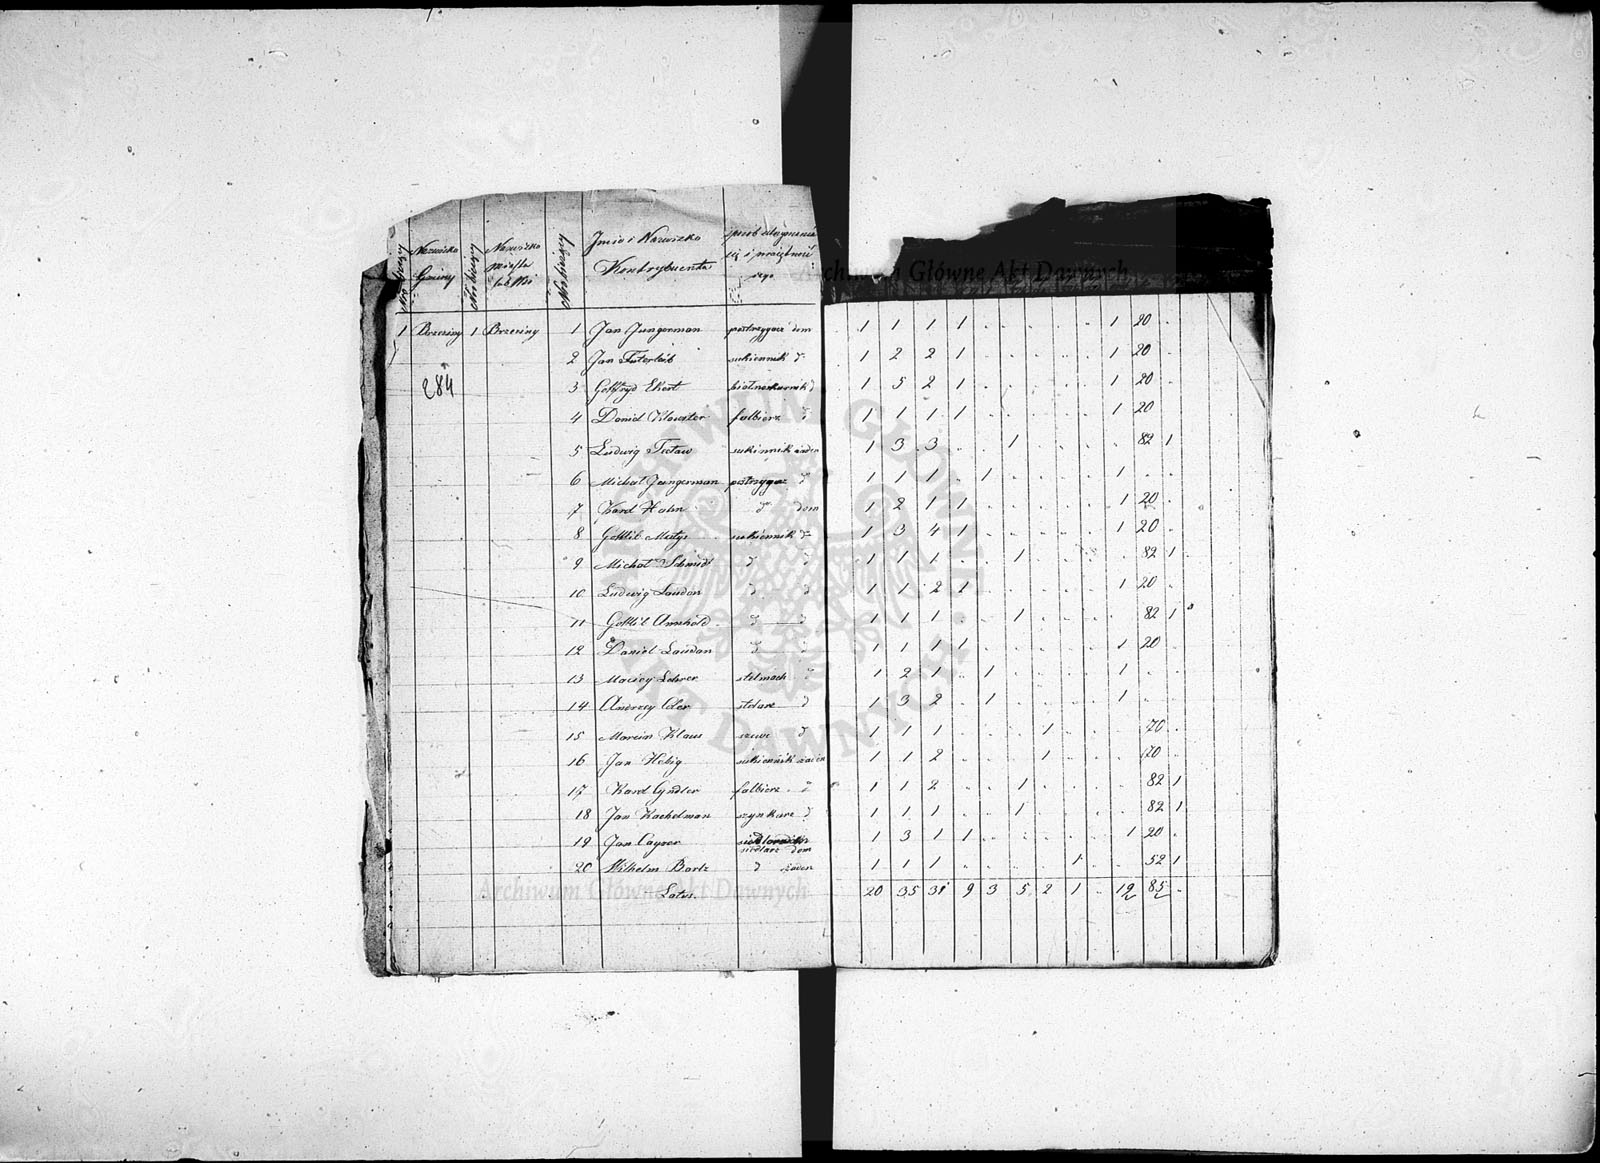 Nazwisko Gminy
Nazwisko miasta lub Wsi
Imie i Nazwisko Kontrybuenta
Archiwum Główne Akt Dawnych
1 Brzeziny 1 Brzeziny 1 Jan Jungerman postrzygacz dom 1 1 1 1 1 20
2 Jan sukiennik d 1 2 2 1 1 20
284
3 Gottfryd Ekert d 1 5 2 1 1 20
4 Daniel falbierz d 1 1 1 1 1 20
5 Ludwig żaden 1 3 3 1 82 1
6 Michał Jungerman d 1 1 1 1 1
7 Karol Hahn do dom 1 2 1 1 1 20
8 Gottlib sukiennik d 1 3 4 1 1 20
9 Michał Schmidt d d 1 1 1 1 82 1
10 Ludwig Laudan d d 1 1 2 1 1 20
11 Gottlib Arnhold d d 1 1 1 1 82 1
12 Daniel Laudan d d 1 1 1 1 1 20
13 Maciey Lehrer stelmach d 1 2 1 1 1
14 Andrzey stolarz d 1 3 2 1 1
15 Marcin Klaus szewc d 1 1 1 1 70
16 Jan Helwig sukiennik żaden 1 1 2 1 70
17 Karol falbierz d 1 1 2 1 82 1
18 Jan Kachelman szynkarz d 1 1 1 1 82 1
19 Jan siodlarz dom 1 3 1 1 1 20
20 Wilhelm Bartz d żaden 1 1 1 1 52 1
Latus. 20 35 31 9 3 5 2 1 12 85
Archiwum Główne Akt Dawnych
ARCHIWUM GŁÓWNE AKT DAWNYCH